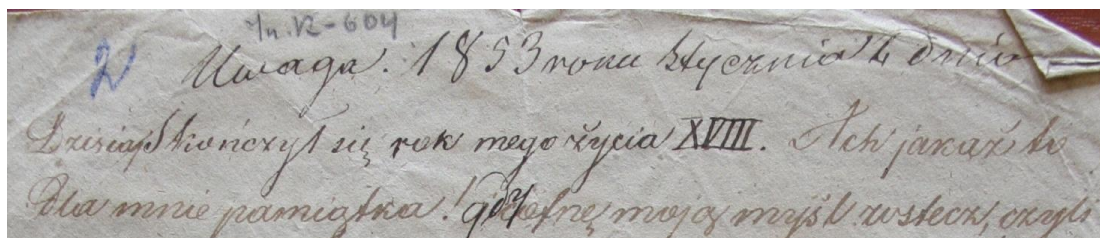 2 Uwaga. 1853 roku stycznia 4 dnia
Dzisiaj Skończył się rok mego życia XVIII. Ach jakaż to
Dla mnie pamiątka! gdy cofnę moją myśl wstecz, czyli